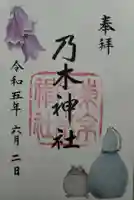 奉拝
乃木神社
令和五年六月二日